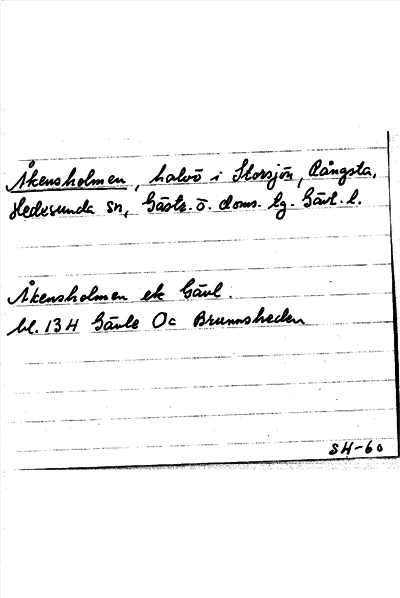 Åkensholmen, halvö i Storsjön, Rångsta,
Hedesunda sn, Gästr. ö. doms. lg. Gävl. l.
Åkensholmen ek Gävl.
bl. 13 H Gävle Oc Brunnsheden
SH-60